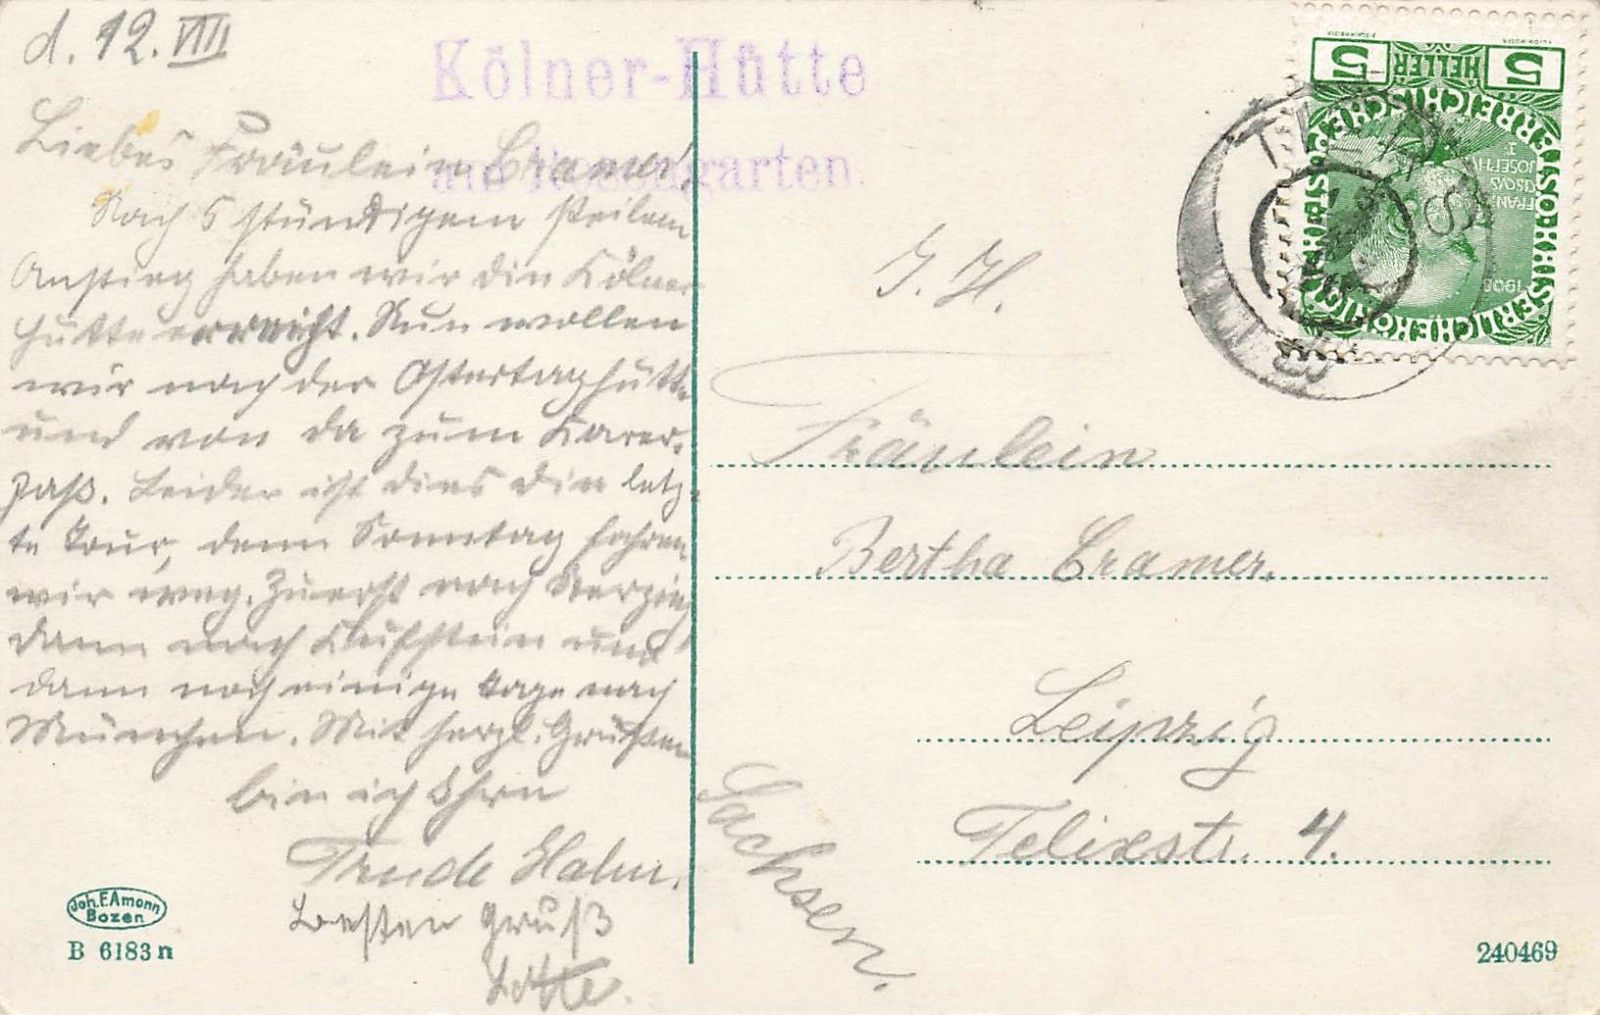 d. 12. VIII
Kölner-Hütte
am Rosengarten.
Liebes Fräulein Cramer!
Nach 5 stündigem steilem
Anstieg haben wir die Kölner
Hütte erreicht. Nun wollen
wir nach der Ostertaghütte
und von da zum Karer-
paß. Leider ist dies die letz-
te Tour, denn Sonntag fahren
wir weg. Zuerst nach
dann nach Kufstein und
dann noch einige Tage nach
München. Mit herzl. Grüßen
bin ich Ihre
Trude Hahn.
Besten Gruß
Lotte.
Joh. F. Amonn
Bozen
B 6183 n
5 HELLER 5
KAISERLICHE KÖNIGLICHE ÖSTERREICHISCHE POST
FRANCISCVS
JOSEPH I.
1908
Fräulein
Bertha Cramer.
Leipzig
Felixstr. 4.
Sachsen.
240469